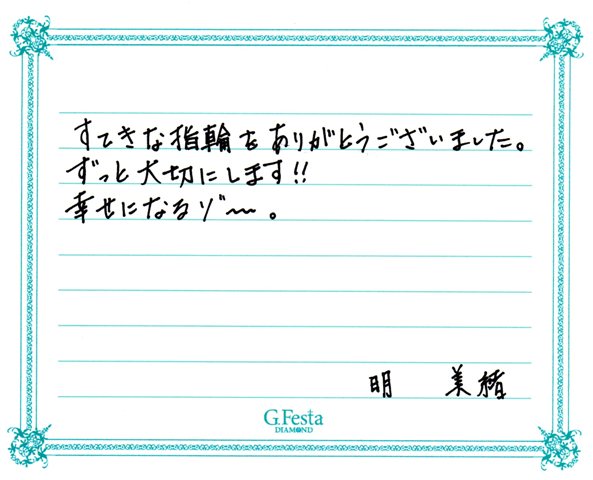 すてきな指輪をありがとうございました。
ずっと大切にします!!
幸せになるゾ〜。
明　美楯
G.Festa
DIAMOND